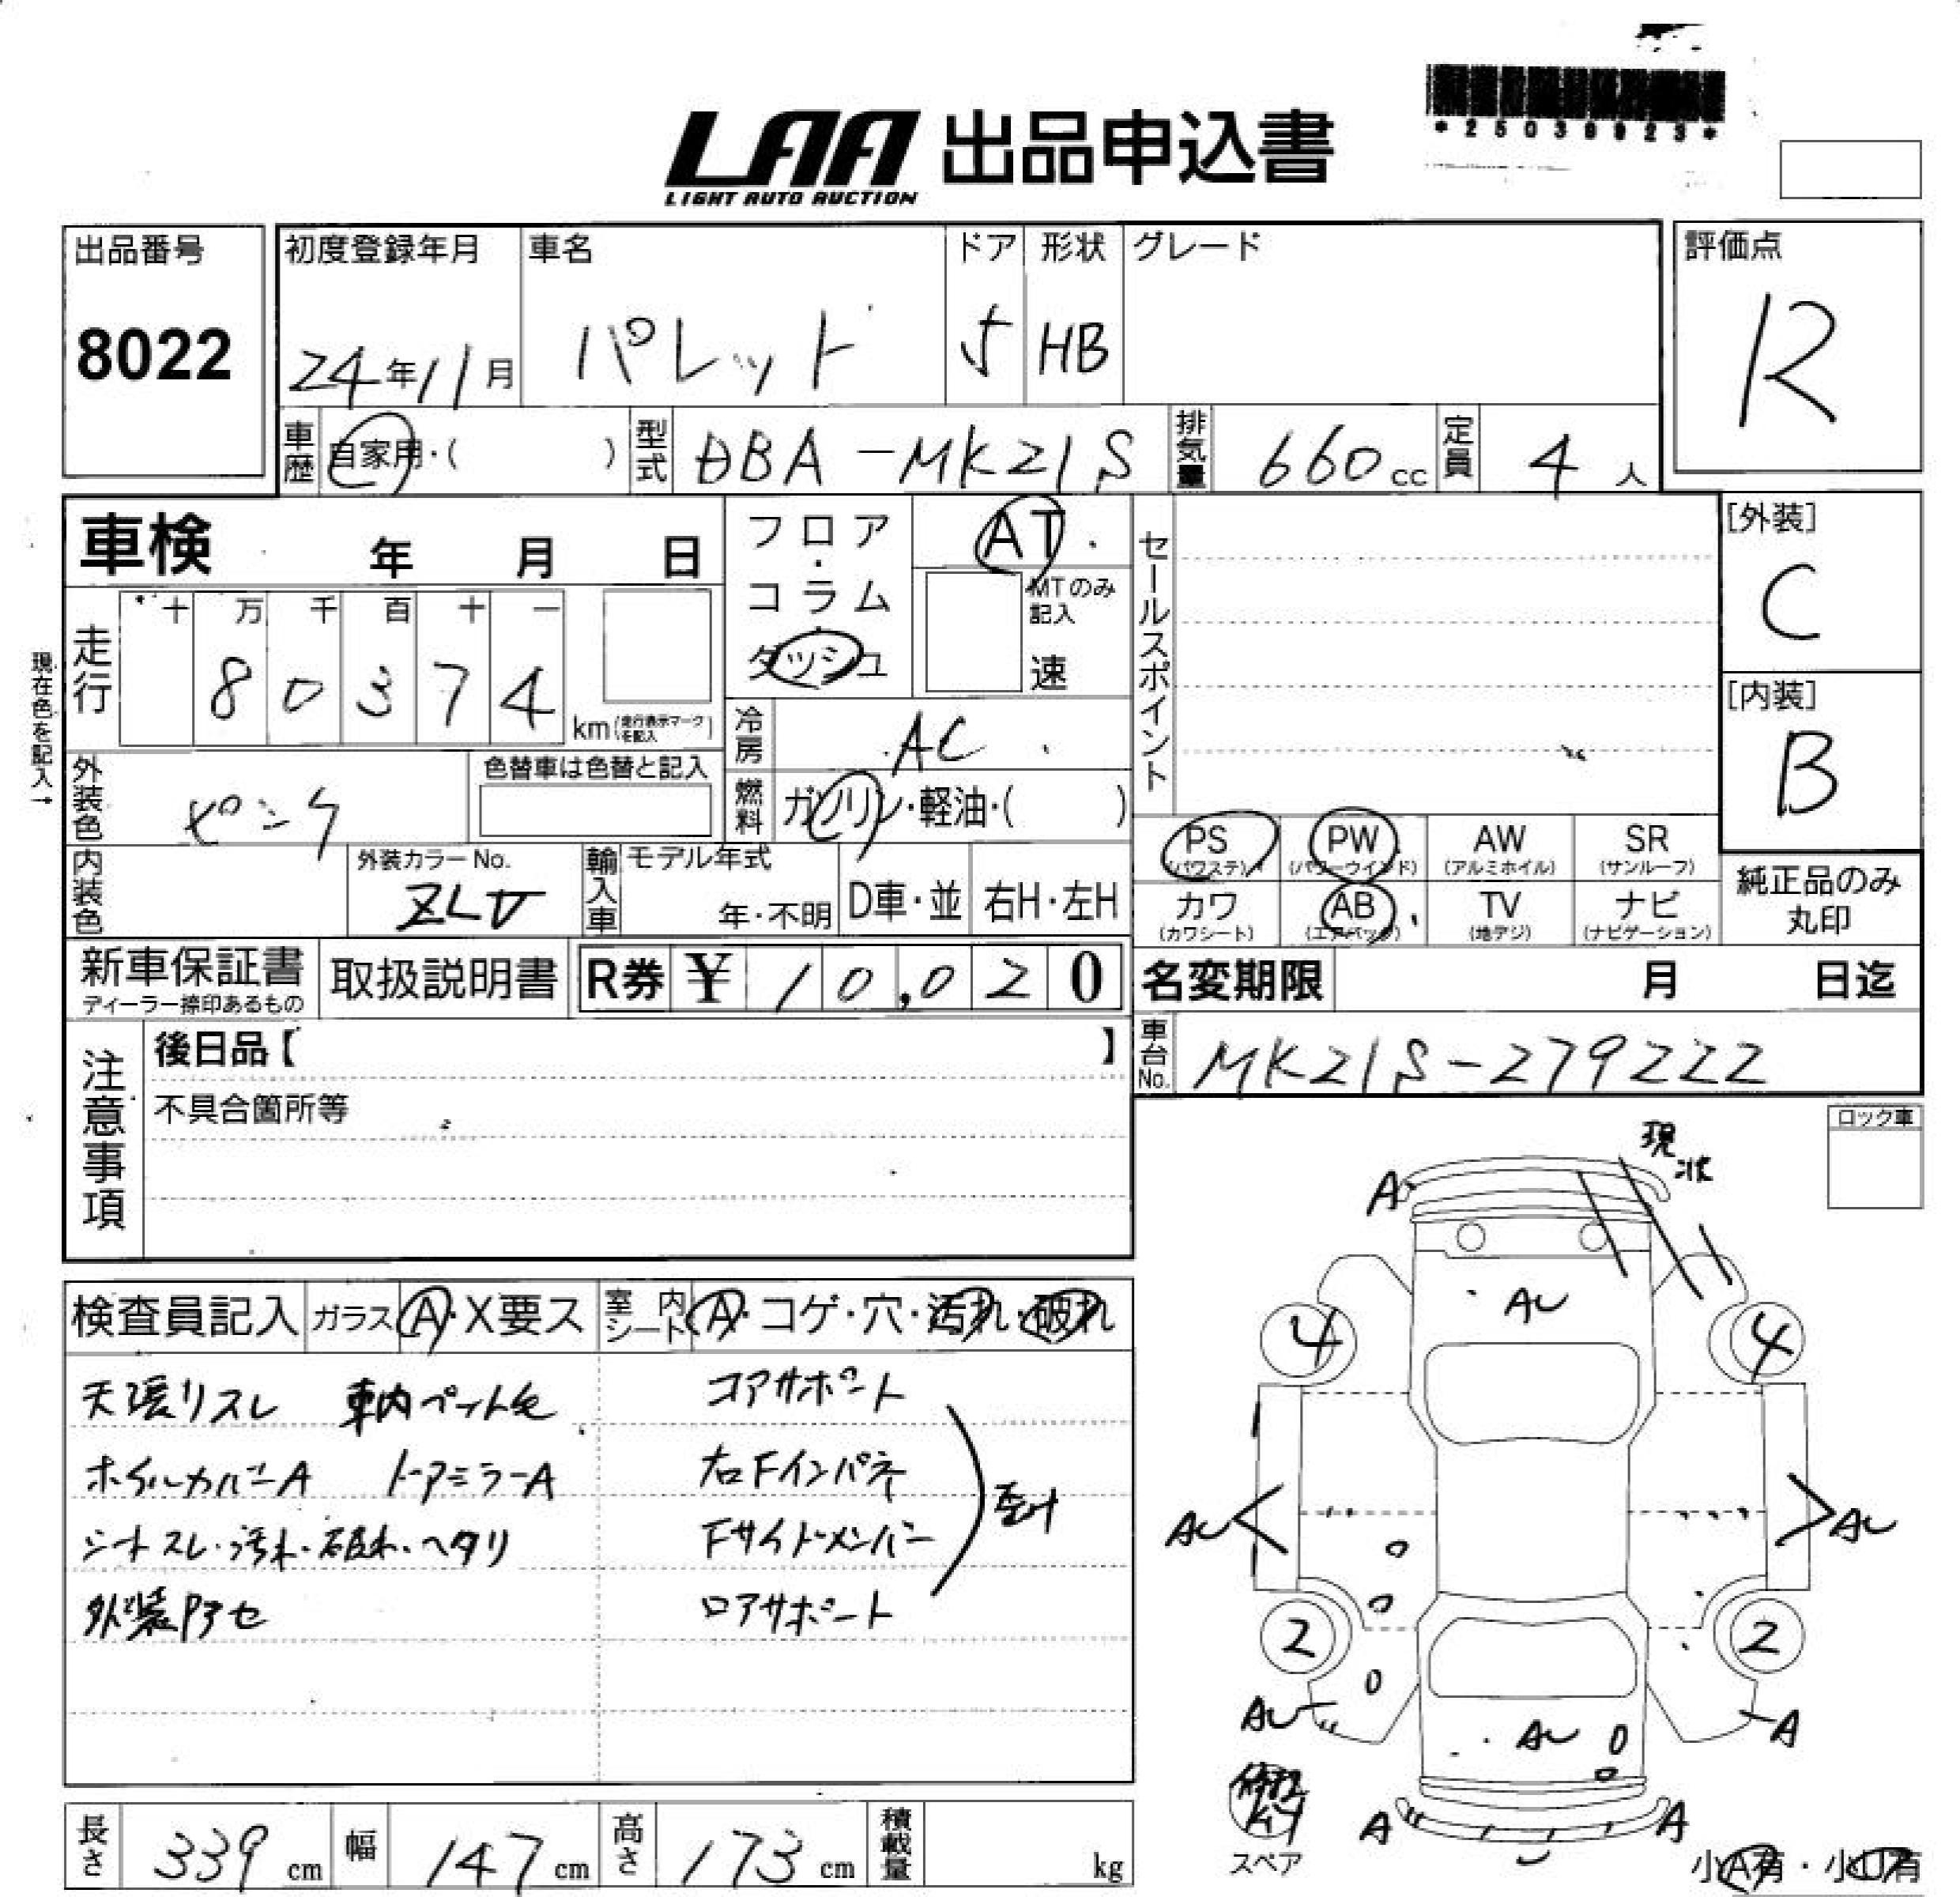 *25039923*
LAA 出品申込書
LIGHT AUTO AUCTION
出品番号 初度登録年月 車名 ドア 形状 グレード 評価点
8022 24年11月 パレット 5 HB R
車歴 自家用・( ) 型式 DBA-MK21S 排気量 660cc 定員 4人
車検 年 月 日
フロア・コラム・ダッシュ
AT
MTのみ記入
速
セールスポイント
[外装]
C
[内装]
B
現在色を記入→
走行 十 万 千 百 十 一
80374
km (走行表示マークを記入)
冷房 AC
外装色 ピンク 色替車は色替と記入
燃料 ガソリン・軽油・( )
PS (パワステ) PW (パワーウインド) AW (アルミホイル) SR (サンルーフ)
内装色 外装カラーNo. ZLV 輸入車 モデル年式 年・不明 D車・並 右H・左H
カワ (カワシート) AB (エアバッグ) TV (地デジ) ナビ (ナビゲーション)
純正品のみ丸印
新車保証書 ディーラー捺印あるもの 取扱説明書 R券 ¥10,020 名変期限 月 日迄
車台No. MK21S-279222
注意事項
後日品【 】
不具合箇所等
ロック車
現状
A
AU
4 4
検査員記入 ガラス A・X要ス 室内シート A・コゲ・穴・汚れ・破れ
天張リスレ 車内ペット毛 コアサポート
ホイルカバーA ドアミラーA 右Fインパネ
シートスレ・汚れ・破れ・ヘタリ Fサイドメンバー
歪み
外装アセ ロアサポート
AU AU
2 2
AU A
AU
A A
スペア
小A有・小U有
長さ 339cm 幅 147cm 高さ 173cm 積載量 kg